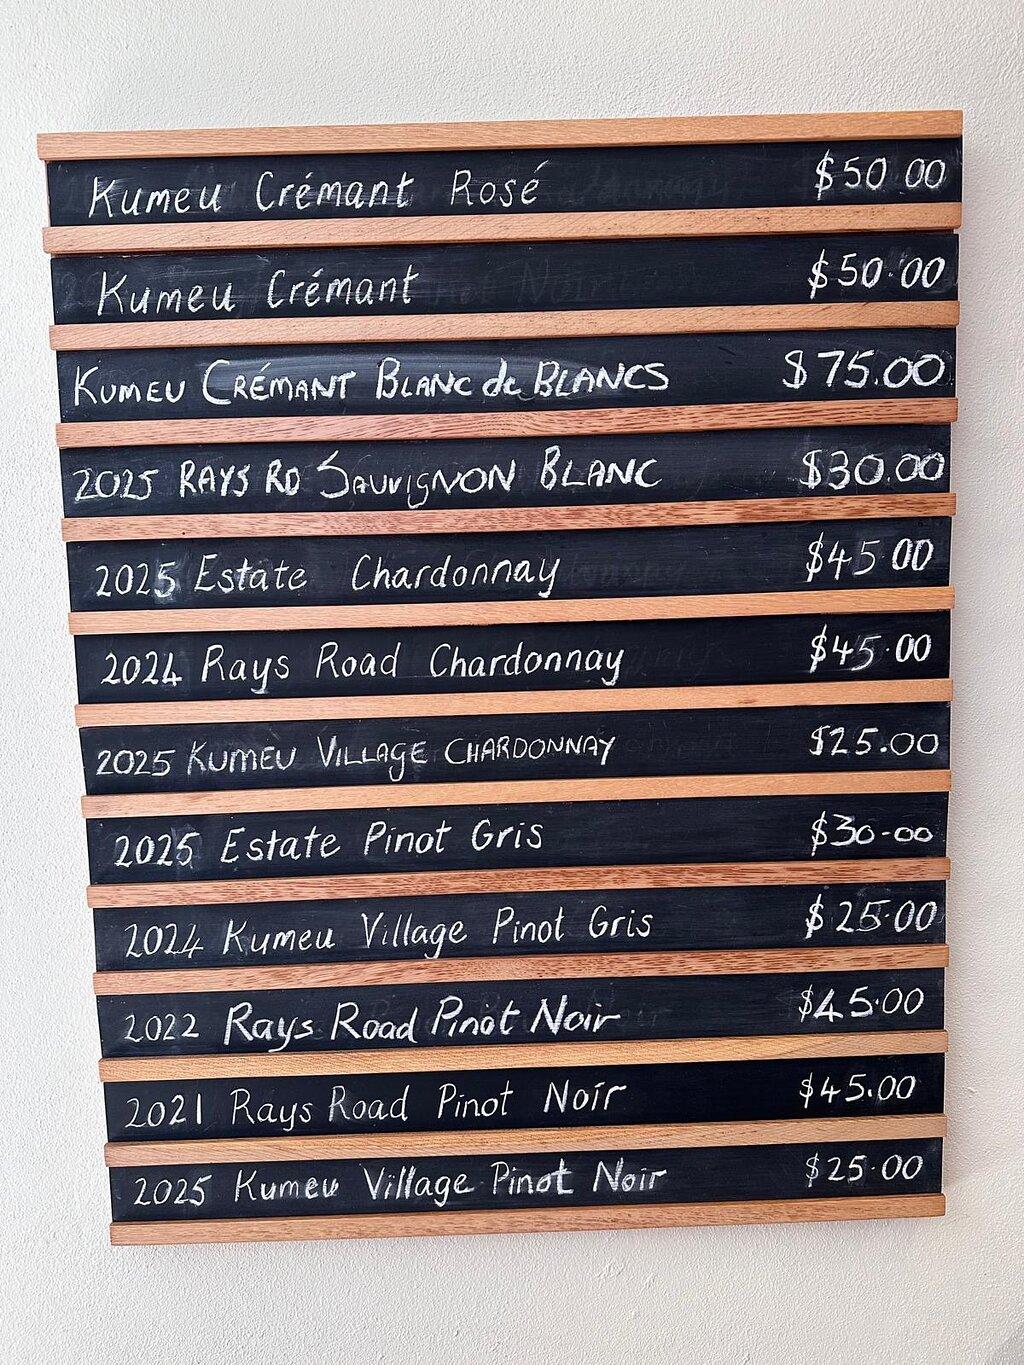 Kumeu Crémant Rosé $50.00
Kumeu Crémant $50.00
KUMEU CRÉMANT BLANC de BLANCS $75.00
2025 RAYS RD SAUVIGNON BLANC $30.00
2025 Estate Chardonnay $45.00
2024 Rays Road Chardonnay $45.00
2025 KUMEU VILLAGE CHARDONNAY $25.00
2025 Estate Pinot Gris $30-00
2024 Kumeu Village Pinot Gris $25.00
2022 Rays Road Pinot Noir $45.00
2021 Rays Road Pinot Noir $45.00
2025 Kumeu Village Pinot Noir $25.00